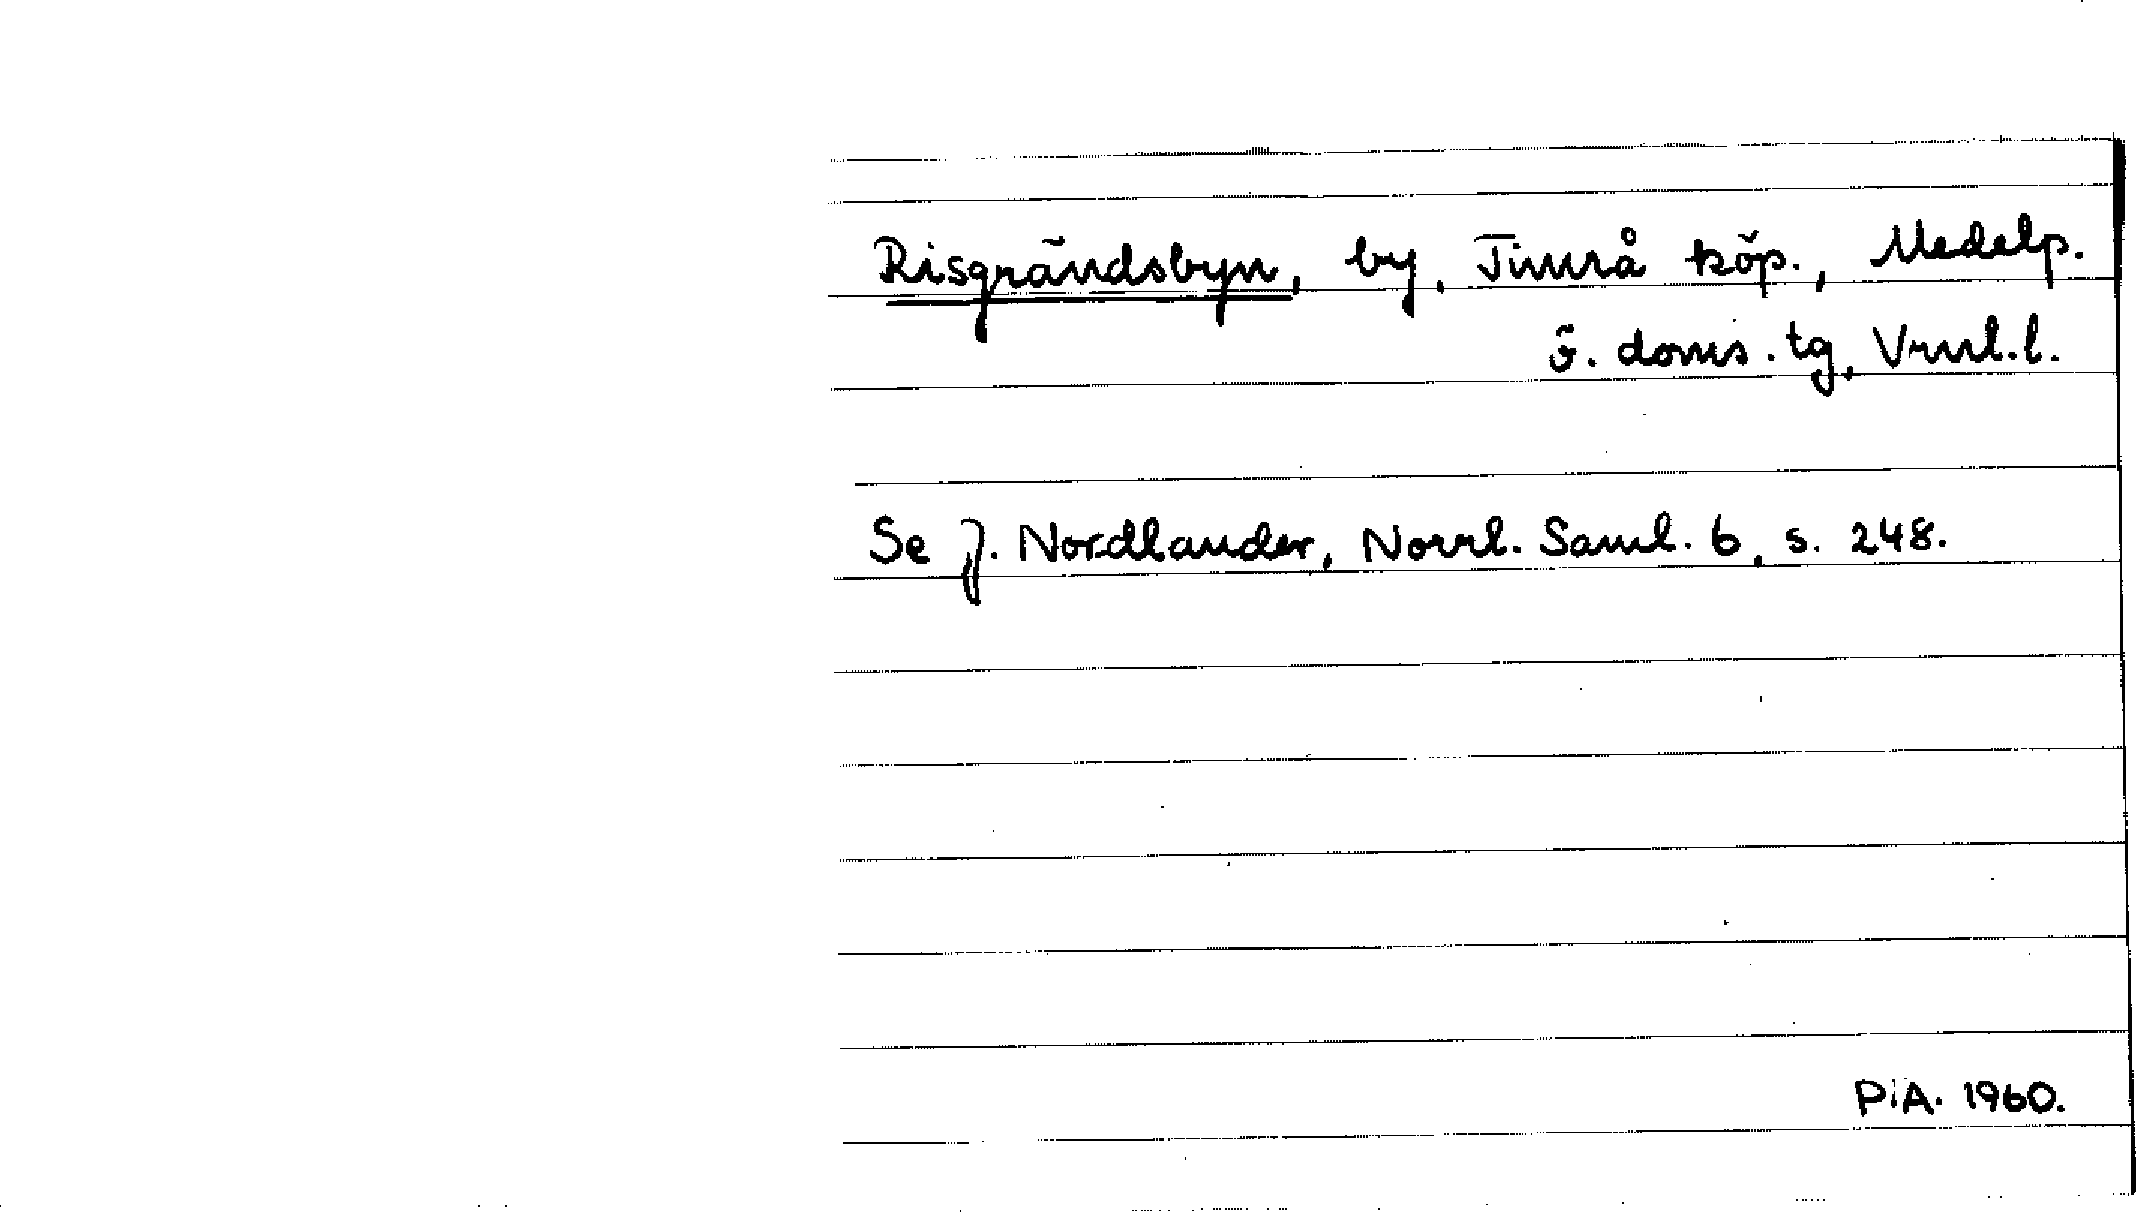 Risgrändsbyn, by, Timrå köp., Medelp.
ö. doms. tg, Vrnl.l.
Se J. Nordlander, Norrl. Saml. 6, s. 248.
P.A. 1960.